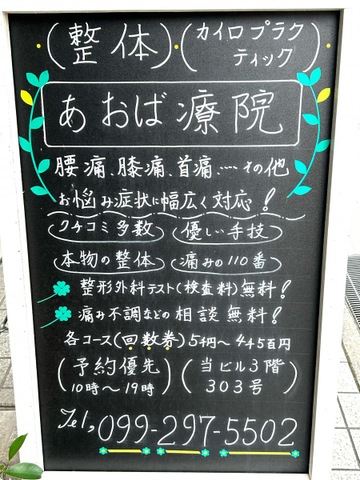 (整体)・(カイロプラク
ティック)
あおば療院
腰痛、膝痛、首痛……その他
お悩み症状に幅広く対応!
クチコミ多数 優しい手技
本物の整体 痛みの110番
整形外科テスト(検査料)無料!
痛み不調などの相談無料!
各コース(回数券)5千円~
(予約優先) (当ビル3階)
10時~19時 303号
Tel,099-297-5502